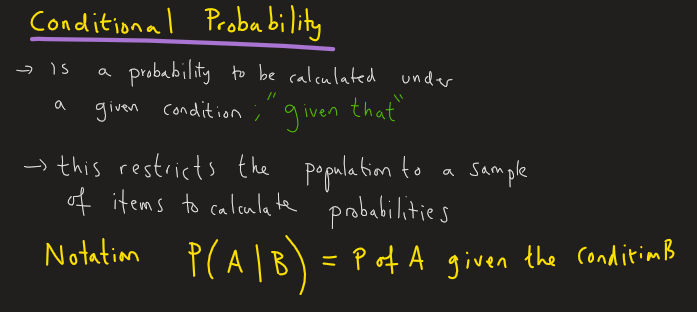 Conditional Probability
→ is a probability to be calculated under
a given condition; "given that"
→ this restricts the population to a sample
of items to calculate probabilities
Notation P(A|B) = P of A given the condition B